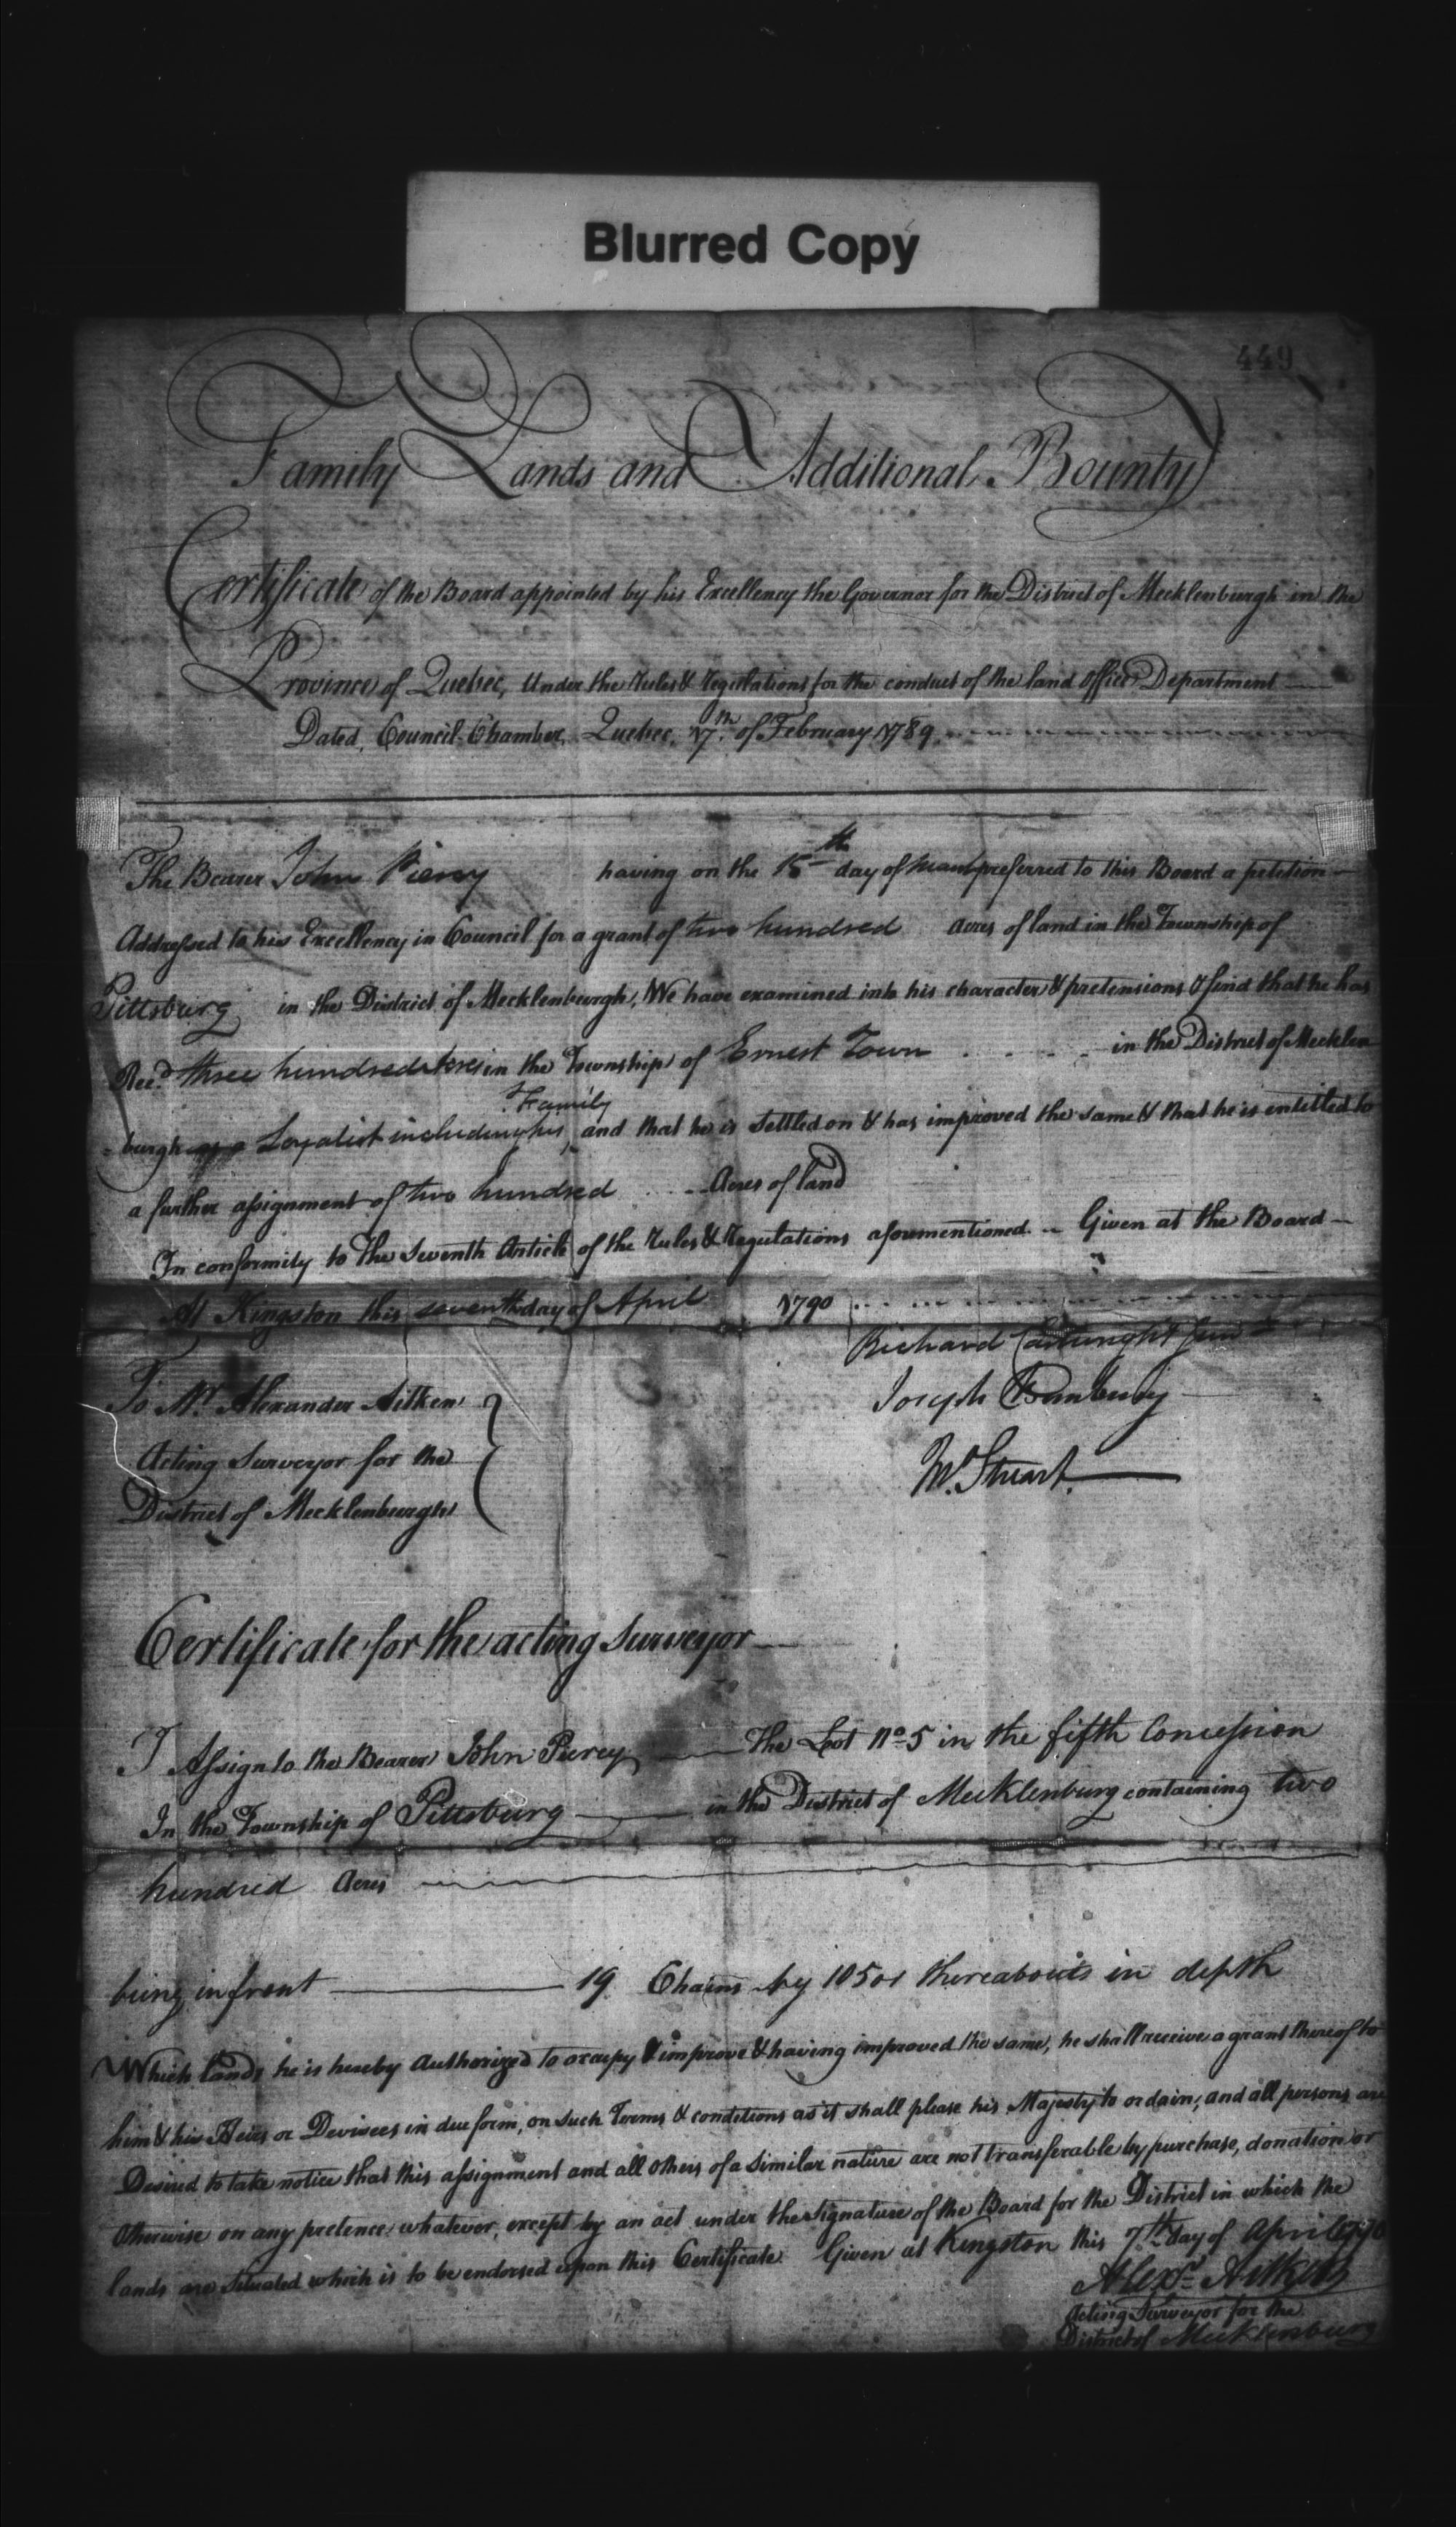 Blurred Copy
449
Family Lands and Additional Bounty
Certificate of the Board appointed by his Excellency the Governor for the District of Mecklenburgh in the
Province of Quebec, Under the Rules & Regulations for the conduct of the land office Department
Dated, Council Chamber, Quebec, 17th of February 1789
The Bearer John having on the 15th day of preferred to this Board a petition
Addressed to his Excellency in Council for a grant of two hundred acres of land in the Township of
Pittsburg in the District of Mecklenburgh, We have examined into his character & pretensions & find that he has
Rec.d three hundred Acres in the Township of Ernest Town in the District of Mecklen
Family
=burgh as a Loyalist including his and that he is settled on & has improved the same & that he is entitled to
a further assignment of two hundred Acres of land
In conformity to the Seventh Article of the Rules & Regulations aforementioned Given at the Board
At Kingston this seventh day of April 1790
Richard Cartwright Junr
To Mr. Alexander Aitken
Joseph Bunbury
Acting Surveyor for the
Wm. Stuart.
District of Mecklenburgh
Certificate for the acting Surveyor
I Assign to the Bearer John The Lot No 5 in the fifth Concession
In the Township of Pittsburg in the District of Mecklenburg containing two
hundred Acres
being in front 19 Chains by 105 or thereabouts in depth
Which lands he is hereby Authorized to occupy & improve & having improved the same, he shall receive a grant thereof to
him & his Heirs or Devisees in due form, on such Terms & conditions as it shall please his Majesty to ordain; and all persons are
Desired to take notice that this assignment and all others of a similar nature are not transferable by purchase, donation or
Otherwise on any pretence whatever, except by an act under the signature of the Board for the District in which the
lands are situated which is to be endorsed upon this Certificate. Given at Kingston this 7th day of April 1790
Alexr. Aitken
Acting Surveyor for the
District of Mecklenburg